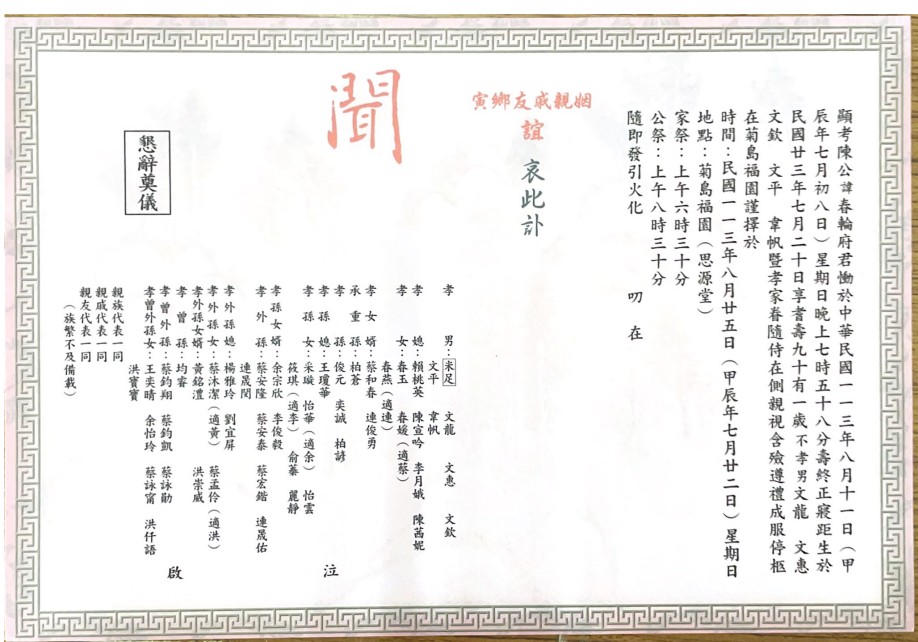 顯考陳公諱春輪府君慟於中華民國一一三年八月十一日（甲
辰年七月初八日）星期日晚上七時五十八分壽終正寢距生於
民國廿三年七月二十日享耆壽九十有一歲不孝男文龍 文惠
文欽 文平 韋帆暨孝家眷隨侍在側親視含殮遵禮成服停柩
在菊島福園謹擇於
時間：民國一一三年八月廿五日（甲辰年七月廿二日）星期日
地點：菊島福園（思源堂）
家祭：上午六時三十分
公祭：上午八時三十分
隨即發引火化 叨在
寅鄉友戚親姻
誼
哀此訃
聞
孝男：未足 文龍 文惠 文欽
文平 韋帆
孝媳：賴桃英 陳宣吟 李月娥 陳茜妮
孝女：春玉 春媛（適蔡）
春燕（適連）
孝女婿：蔡和春 連俊勇
承重孫：柏蒼
孝孫：俊元 奕誠 柏諺
孝孫媳：王瓊華
孝孫女：采璇 怡華（適余） 怡雲
筱琪（適李） 俞蓁 麗靜
孝孫女婿：余宗欣 李俊毅
孝外孫：蔡安隆 蔡安泰 蔡宏鍇 連晟佑
連晟閔
孝外孫媳：楊雅玲 劉宜屏
孝外孫女：蔡沐潔（適黃） 蔡孟伶（適洪）
孝外孫女婿：黃銘澧 洪崇威
孝曾孫：均睿
孝曾外孫：蔡鈞翔 蔡鈞凱 蔡詠勛
孝曾外孫女：王奕晴 余怡玲 蔡詠甯 洪仟語
洪寶寶
泣
啟
親族代表一同
親戚代表一同
親友代表一同
（族繁不及備載）
懇辭奠儀